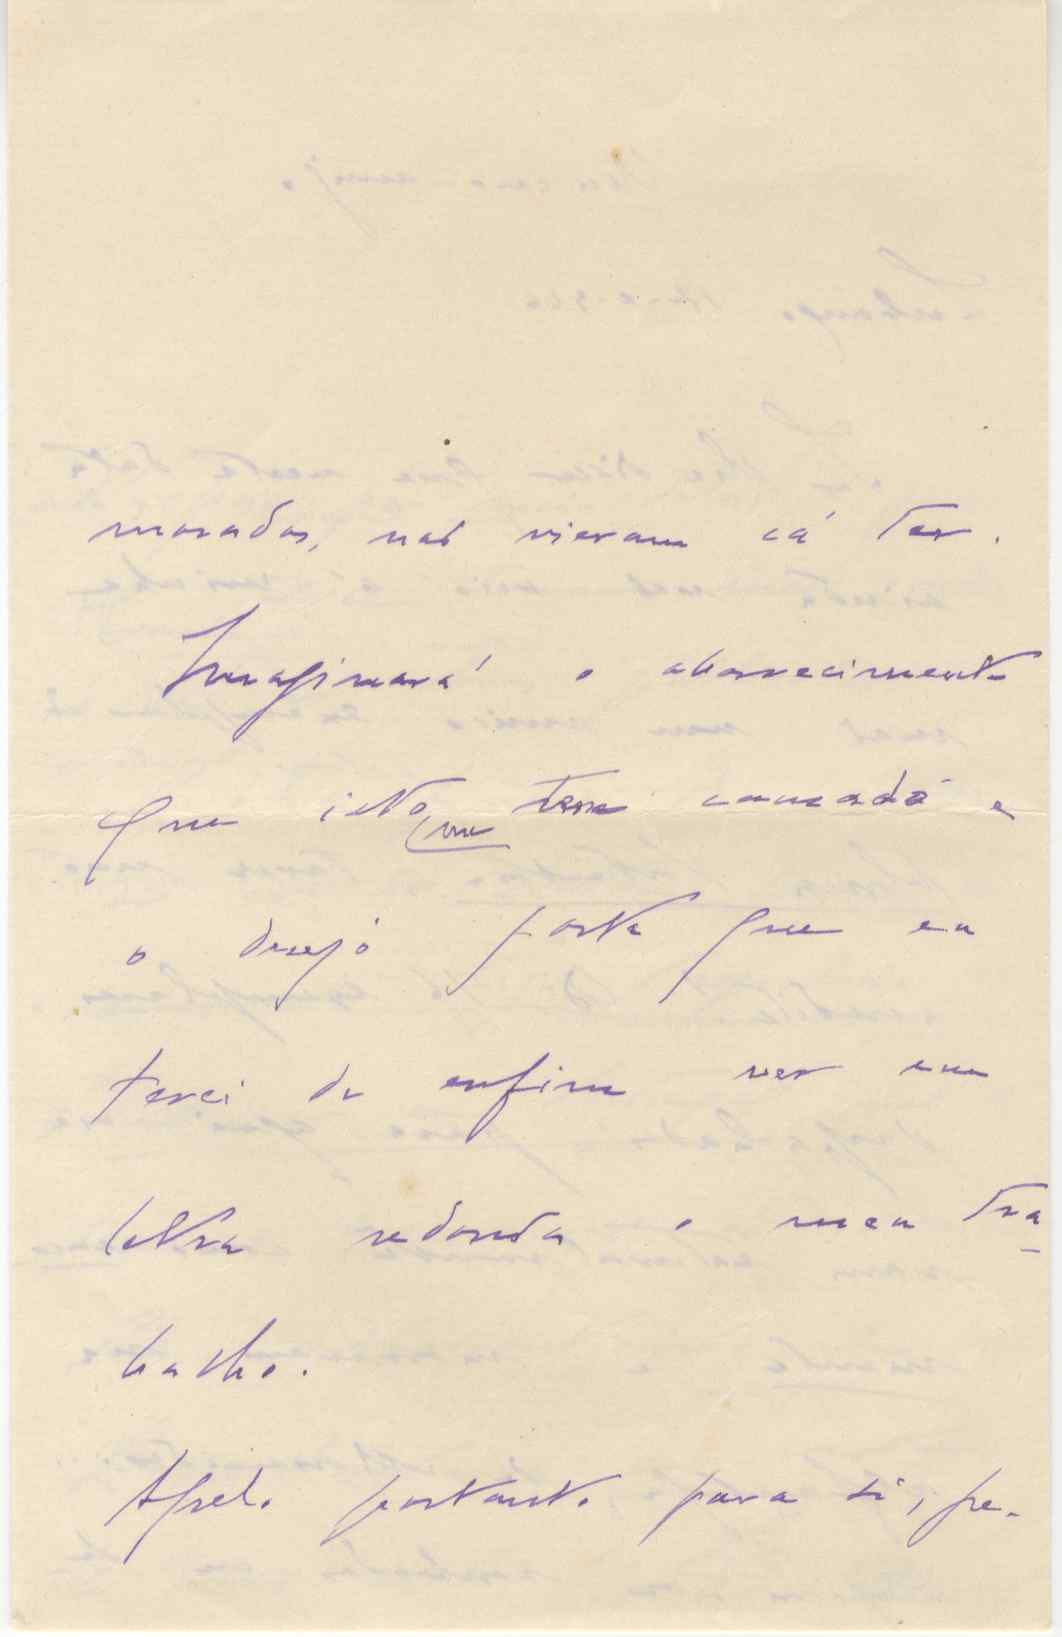 moradas, não vieram cá ter.
Imaginará o aborrecimento
que isto me tem causado e
o desejo posto que eu
terei de enfim ver em
letra redonda o meu tra-
balho.
Apelo portanto para si, pe-